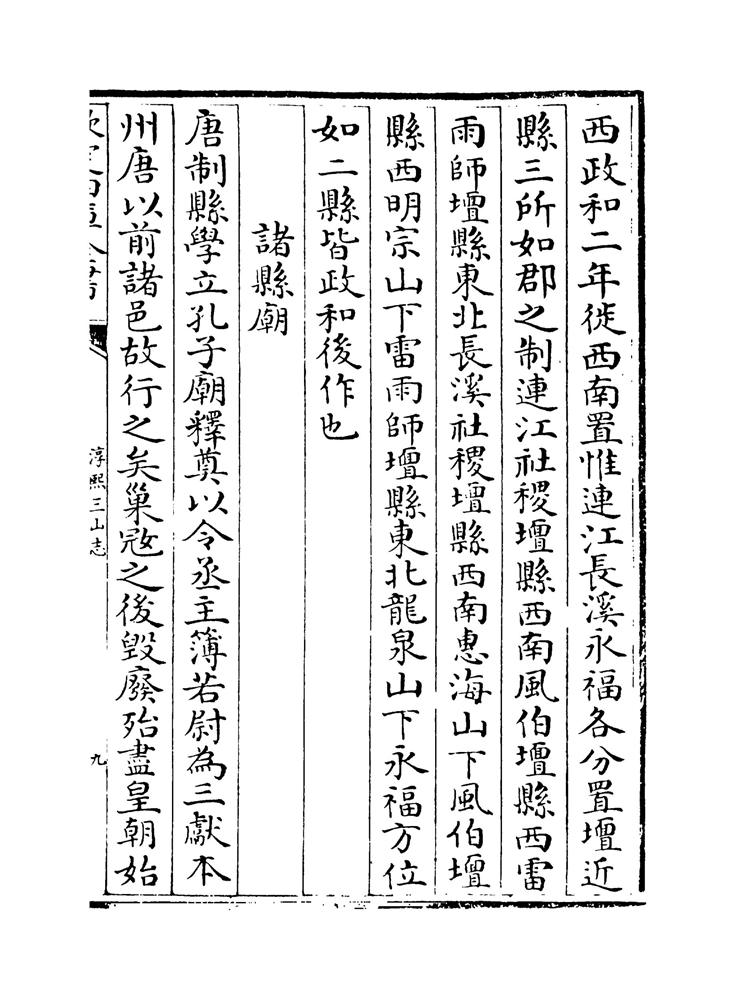 西政和二年徙西南置惟連江長溪永福各分置壇近
縣三所如郡之制連江社稷壇縣西南風伯壇縣西雷
雨師壇縣東北長溪社稷壇縣西南惠海山下風伯壇
縣西明宗山下雷雨師壇縣東北龍泉山下永福方位
如二縣皆政和後作也
諸縣廟
唐制縣學立孔子廟釋奠以令丞主簿若尉為三獻本
州唐以前諸邑故行之矣巢宼之後毁廢殆盡皇朝始
淳熙三山志
九